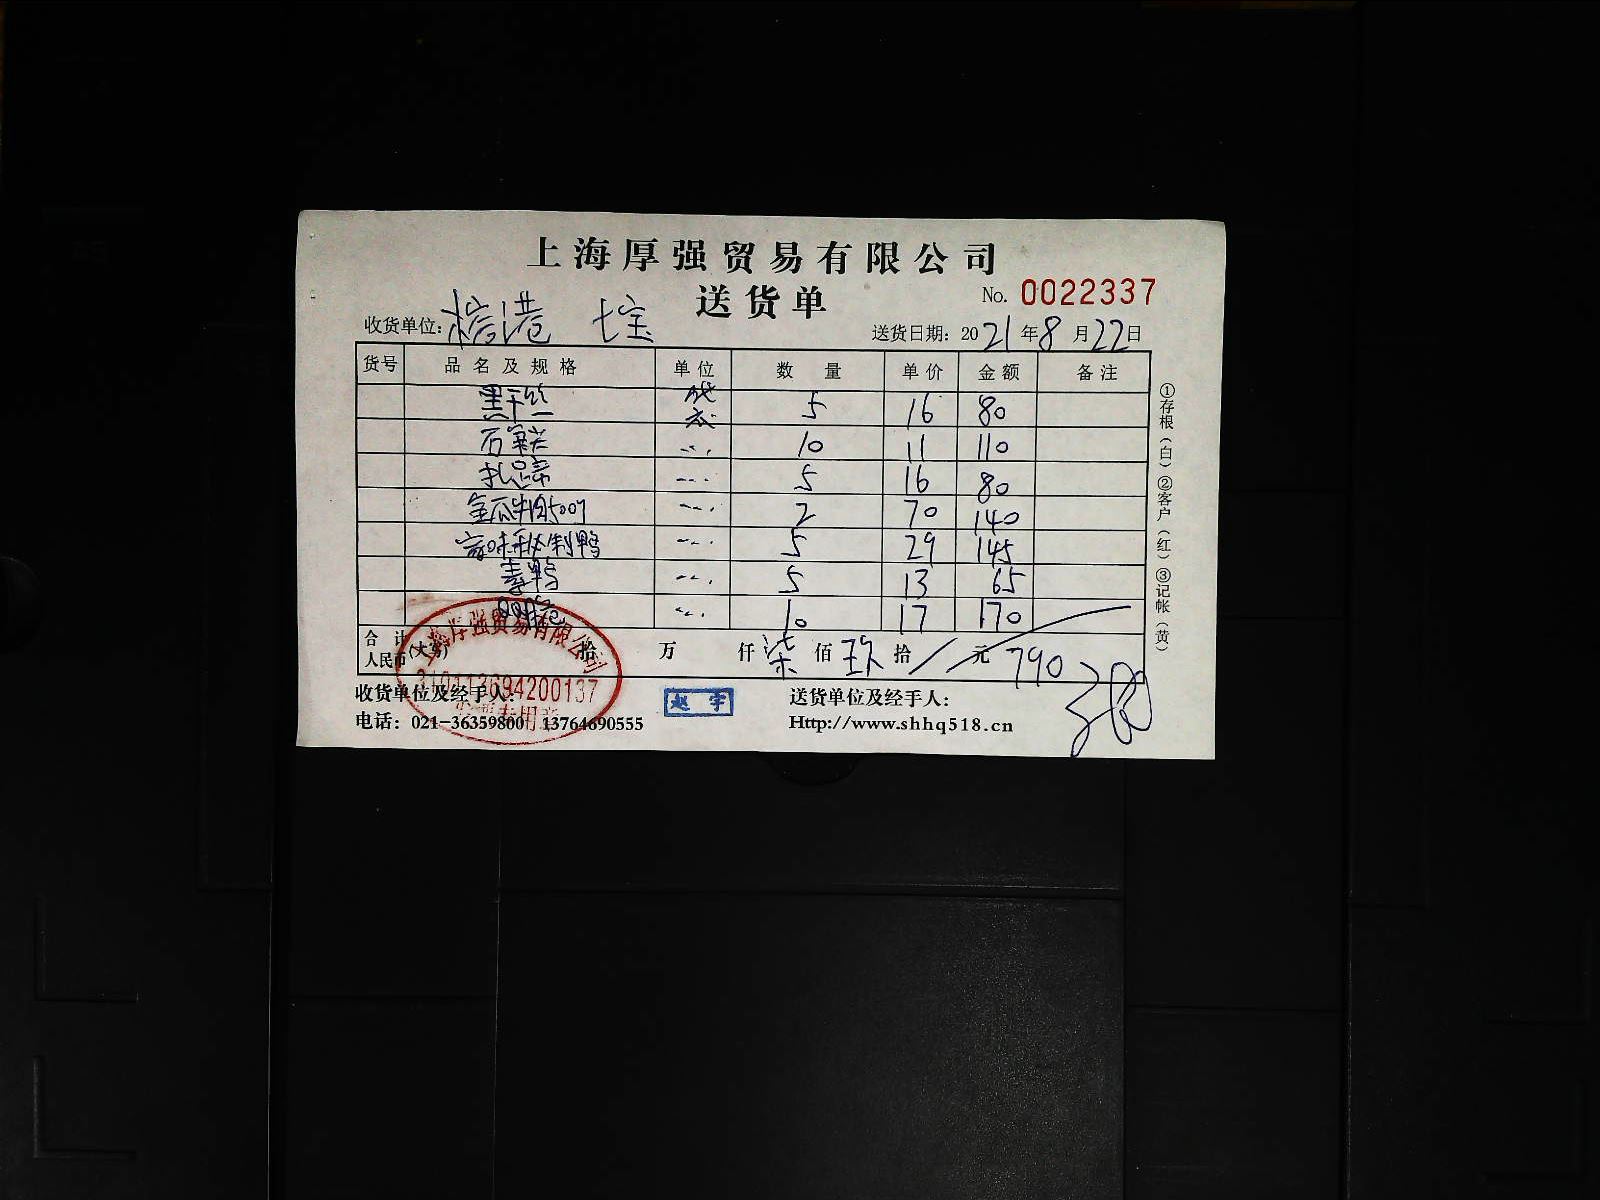 上海厚强贸易有限公司
送货单
No. 0022337
收货单位: 港 七宝
送货日期: 2021年8月22日
货号 品名及规格 单位 数量 单价 金额 备注
黑干丝 袋 5 16 80
石 10 11 110
扎蹄 5 16 80
金瓜牛肉500g 2 70 140
味秘制鸭 5 29 145
素鸭 5 13 65
10 17 170
合计
人民币(大写) 拾 万 仟 柒 佰 玖 拾 / 元 790
收货单位及经手人:
赵宇
送货单位及经手人:
电话: 021-36359800 13764690555
Http://www.shhq518.cn
上海厚强贸易有限公司
310113694200137
专用章
①存根(白)②客户(红)③记帐(黄)